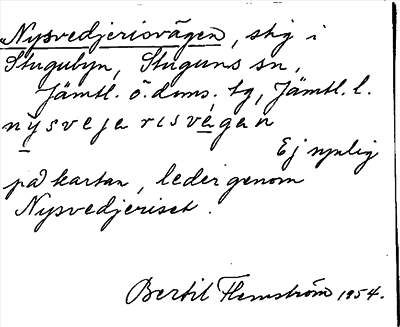 Nysvedjerisvägen, stig i
Stugubyn, Stuguns sn,
Jämtl. ö. doms. tg, Jämtl. l.
nysveja risvägan
Ej synlig
på kartan, leder genom
Nysvedjeriset.
Bertil Flemström 1954.